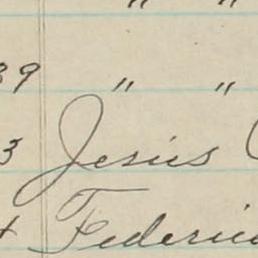 " "
39 " "
3 Jesús
Federic